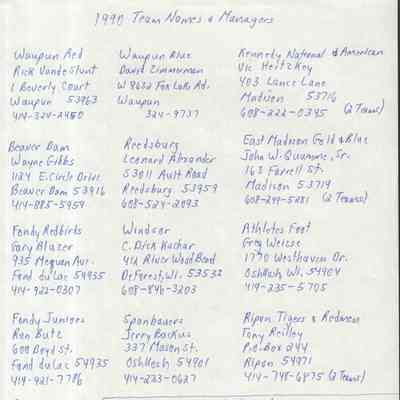 1990 Team Names & Managers
Waupun Red
Rick Vande Slunt
1 Beverly Court
Waupun 53963
414-324-2450
Waupun Blue
David Zimmerman
W 9632 Fox Lake Rd.
Waupun
324-9737
Kennedy National & American
Vic Hertzkey
403 Lance Lane
Madison 53716
608-222-0345 (2 Teams)
Beaver Dam
Wayne Gibbs
1124 E. Circle Drive
Beaver Dam 53916
414-885-5959
Reedsburg
Leonard Alexander
S3011 Ault Road
Reedsburg 53959
608-524-2093
East Madison Gold & Blue
John W. Quamme, Sr.
163 Farrell St.
Madison 53714
608-244-5281 (2 Teams)
Fondy Redbirds
Gary Blazer
935 Mequon Ave.
Fond du lac 54935
414-922-0307
Windsor
C. Dick Kachar
412 River Wood Bend
DeForest, Wi. 53532
608-846-3203
Athletes Foot
Greg Weisse
1770 Westhaven Dr.
Oshkosh Wi. 54904
414-235-5705
Fondy Juniors
Ron Butz
600 Boyd St.
Fond du lac 54935
414-921-7786
Spanbauers
Jerry Backus
337 Mason St.
Oshkosh 54901
414-233-0627
Ripon Tigers & Redmen
Tony Reilley
P.O. Box 244
Ripon 54971
414-748-6875 (2 Teams)